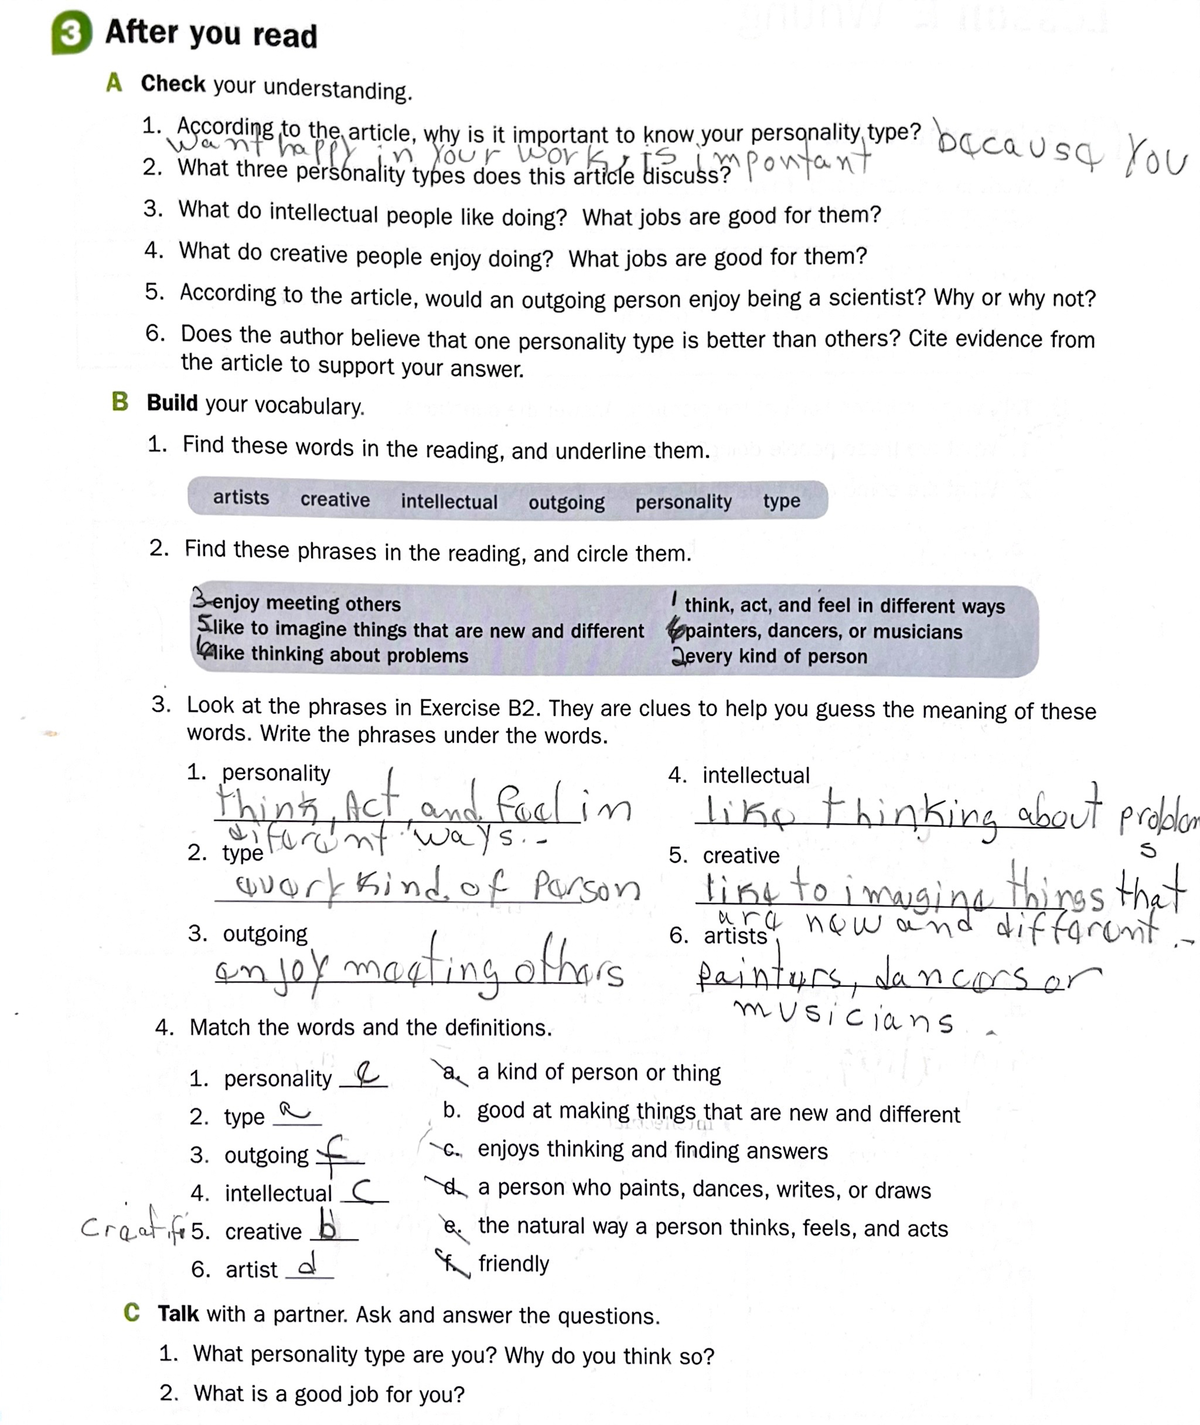 3 After you read
A Check your understanding.
1. According to the article, why is it important to know your personality type? because You
want happy in your work, is impontant
2. What three personality types does this article discuss?
3. What do intellectual people like doing? What jobs are good for them?
4. What do creative people enjoy doing? What jobs are good for them?
5. According to the article, would an outgoing person enjoy being a scientist? Why or why not?
6. Does the author believe that one personality type is better than others? Cite evidence from
the article to support your answer.
B Build your vocabulary.
1. Find these words in the reading, and underline them.
artists creative intellectual outgoing personality type
2. Find these phrases in the reading, and circle them.
3 enjoy meeting others
5 like to imagine things that are new and different
like thinking about problems
1 think, act, and feel in different ways
6 painters, dancers, or musicians
2 every kind of person
3. Look at the phrases in Exercise B2. They are clues to help you guess the meaning of these
words. Write the phrases under the words.
1. personality
think, Act, and feel in
diferent ways.-
2. type
every kind of Person
3. outgoing
enjoy meeting others
4. intellectual
like thinking about problem
s
5. creative
like to imagine things that
are new and different.-
6. artists
painters, dancers or
musicians.
4. Match the words and the definitions.
1. personality e
2. type a
3. outgoing f
4. intellectual c
5. creative b
6. artist d
a. a kind of person or thing
b. good at making things that are new and different
c. enjoys thinking and finding answers
d. a person who paints, dances, writes, or draws
e. the natural way a person thinks, feels, and acts
f. friendly
C Talk with a partner. Ask and answer the questions.
1. What personality type are you? Why do you think so?
2. What is a good job for you?